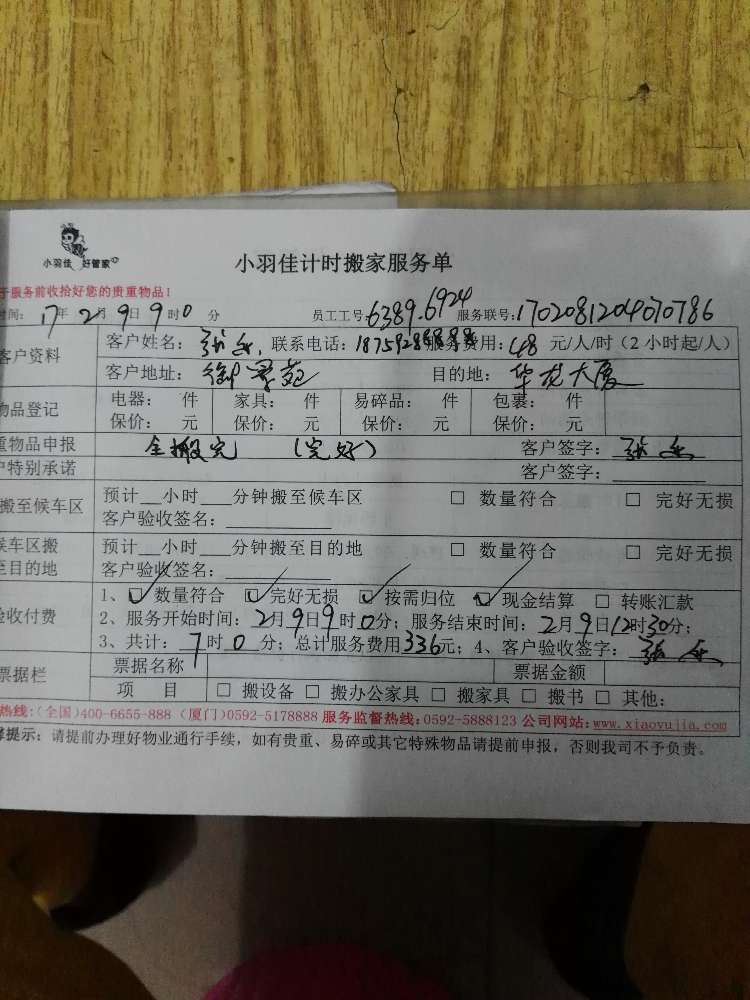 小羽佳 好管家
小羽佳计时搬家服务单
于服务前收拾好您的贵重物品！
时间：17年2月9日9时0分 员工工号：6389.6924 服务联号：1702081204070786
客户资料 客户姓名：张 联系电话： 服务费用：48元/人/时（2小时起/人）
客户地址：御景苑 目的地：华龙大厦
物品登记 电器： 件 家具： 件 易碎品： 件 包裹： 件
保价： 元 保价： 元 保价： 元 保价： 元
重物品申报 全搬完 （完好） 客户签字：张
户特别承诺 客户签字：
搬至候车区 预计__小时___分钟搬至候车区 □ 数量符合 □ 完好无损
客户验收签名：
候车区搬 预计__小时___分钟搬至目的地 □ 数量符合 □ 完好无损
至目的地 客户验收签名：
验收付费 1、☑ 数量符合 ☑ 完好无损 ☑ 按需归位 ☑ 现金结算 □ 转账汇款
2、服务开始时间：2月9日9时0分；服务结束时间：2月9日12时30分；
3、共计：7时0分；总计服务费用336元；4、客户验收签字：张
票据栏 票据名称 票据金额
项 目 □ 搬设备 □ 搬办公家具 □ 搬家具 □ 搬书 □ 其他：
热线：（全国）400-6655-888 （厦门）0592-5178888 服务监督热线：0592-5888123 公司网站：www.xiaoyujia.com
提示：请提前办理好物业通行手续，如有贵重、易碎或其它特殊物品请提前申报，否则我司不予负责。